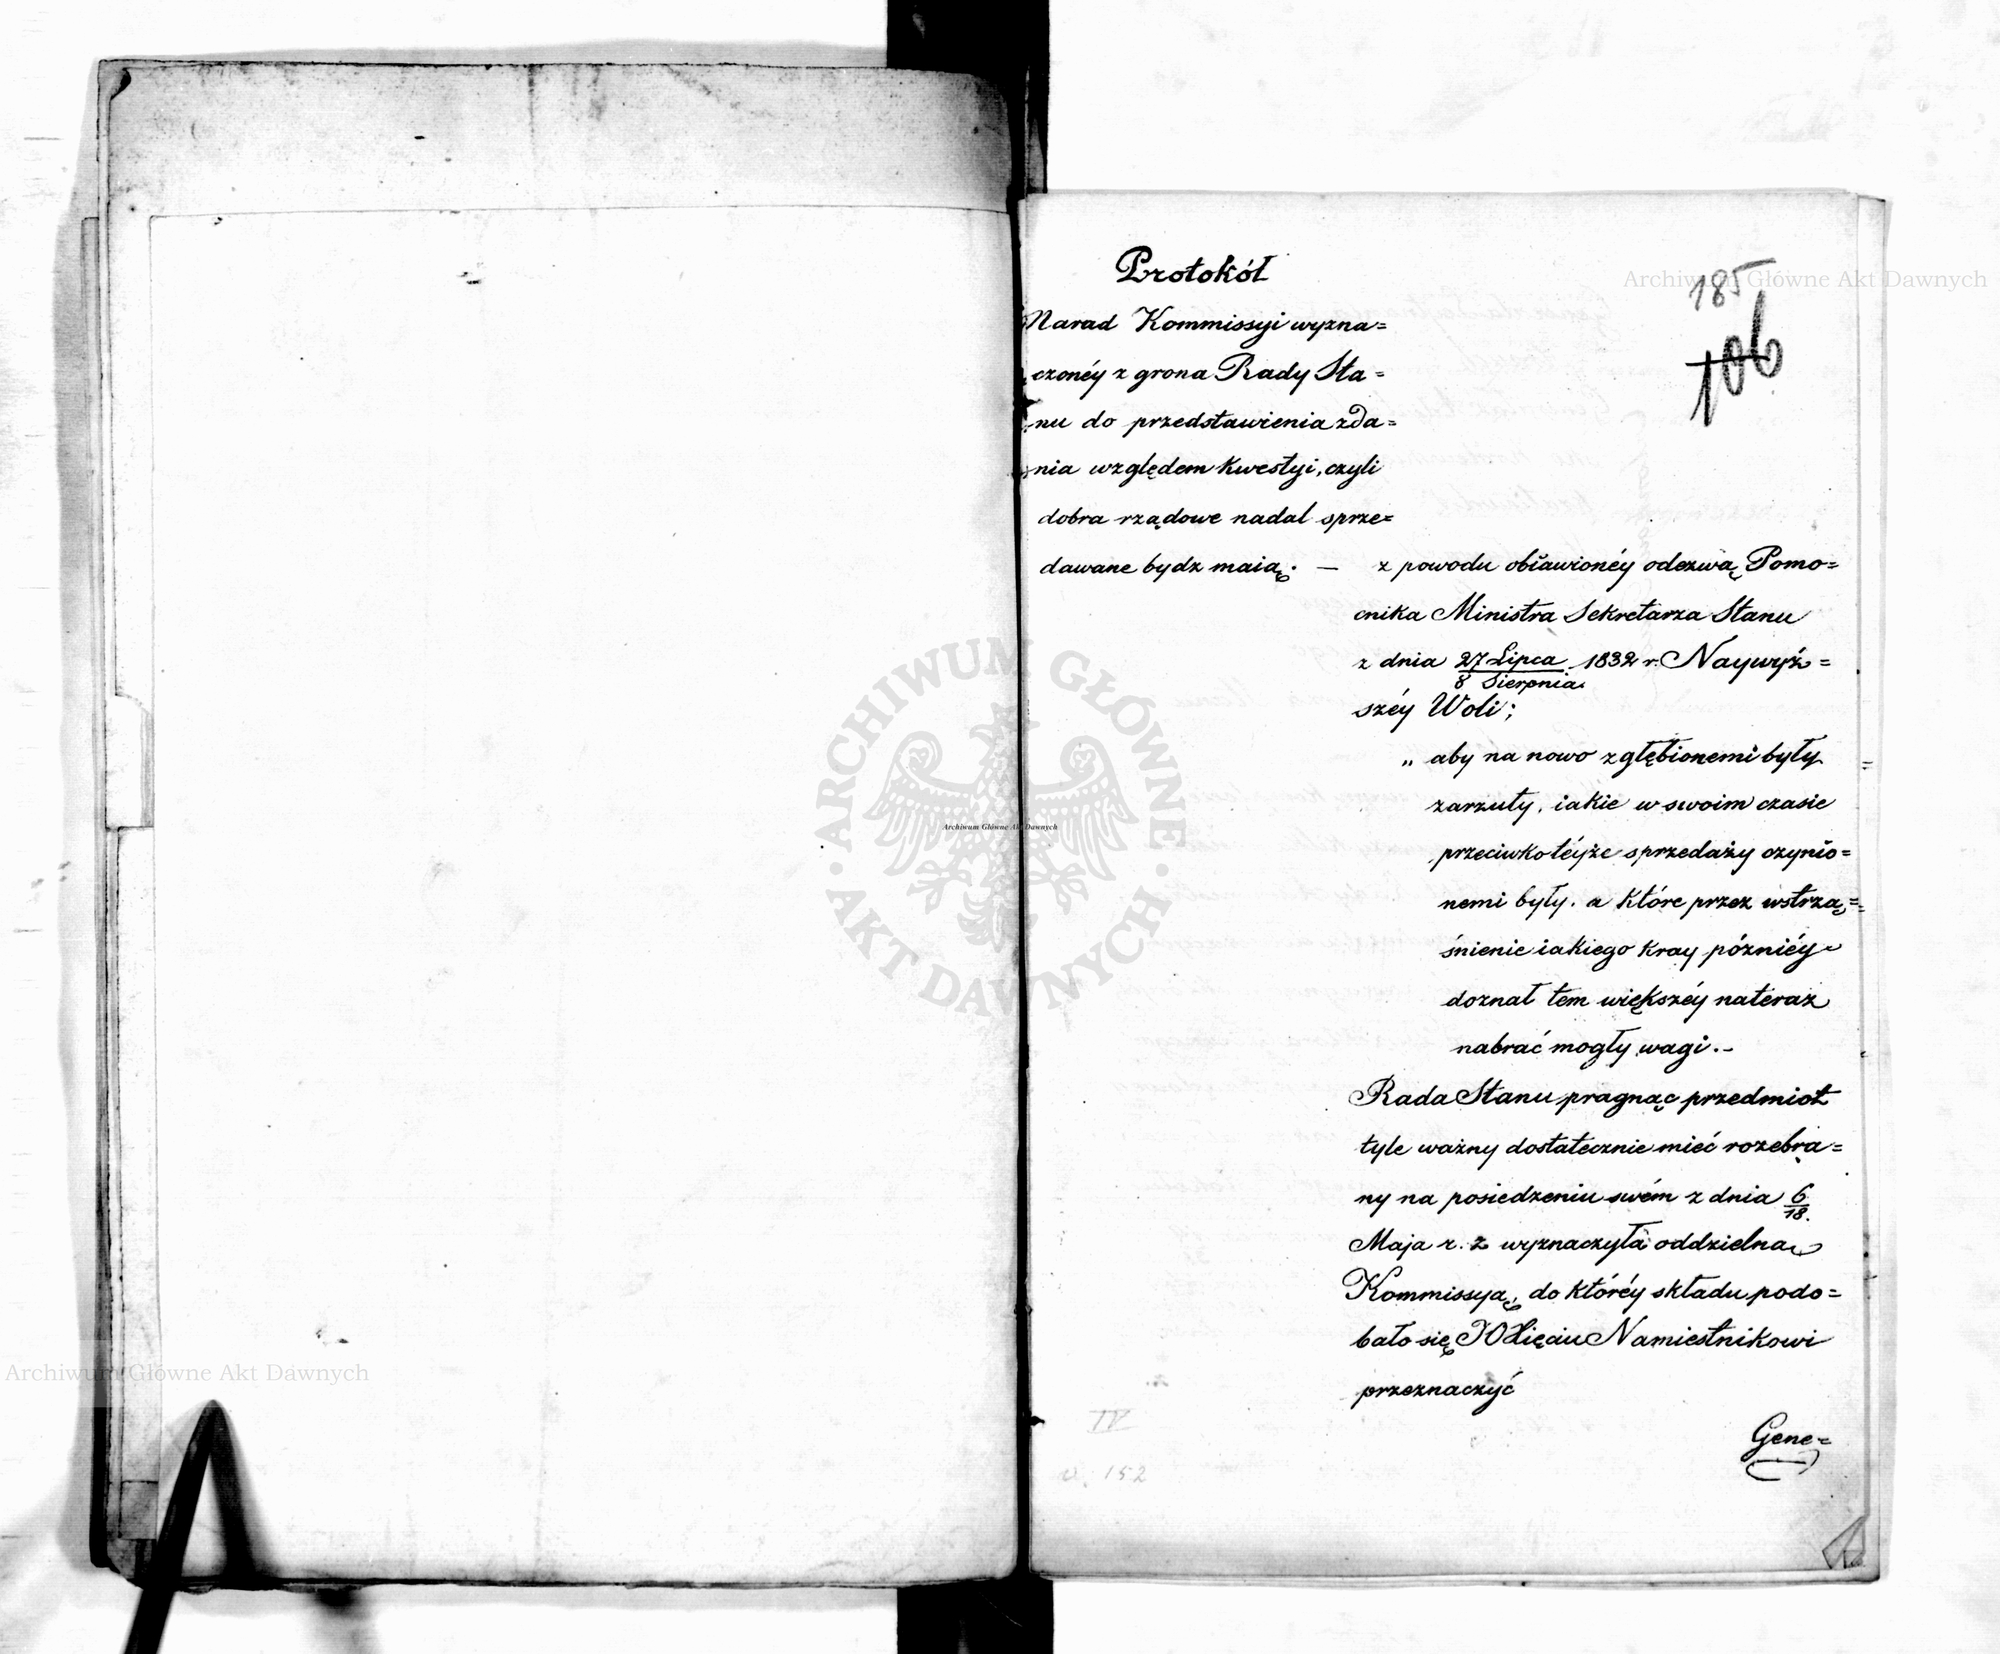 185
106
Protokół
Narad Kommissyi wyzna=
czonéy z grona Rady Sta=
nu do przedstawienia zda=
nia względem kwestyi, czyli
dobra rządowe nadal sprze=
dawane bydz maią. — z powodu obiawionéy odezwą Pomo=
cnika Ministra Sekretarza Stanu
z dnia 27 Lipca / 8 Sierpnia 1832 r. Naywyż=
széy Woli;
„ aby na nowo zgłębionemi były
zarzuty, iakie w swoim czasie
przeciwko téyże sprzedaży czynio=
nemi były. a które przez wstrzą=
śnienie iakiego kray późniéy
doznał tem większéy nateraz
nabrać mogły wagi.–
Rada Stanu pragnąc przedmiot
tyle ważny dostatecznie mieć rozebra=
ny na posiedzeniu swém z dnia 6/18.
Maja r. z wyznaczyła oddzielną
Kommissyą, do któréy składu podo=
bało się JO Xięciu Namiestnikowi
przeznaczyć
Gene=
IV
152
Archiwum Główne Akt Dawnych
Archiwum Główne Akt Dawnych
Archiwum Główne Akt Dawnych
ARCHIWUM GŁÓWNE AKT DAWNYCH